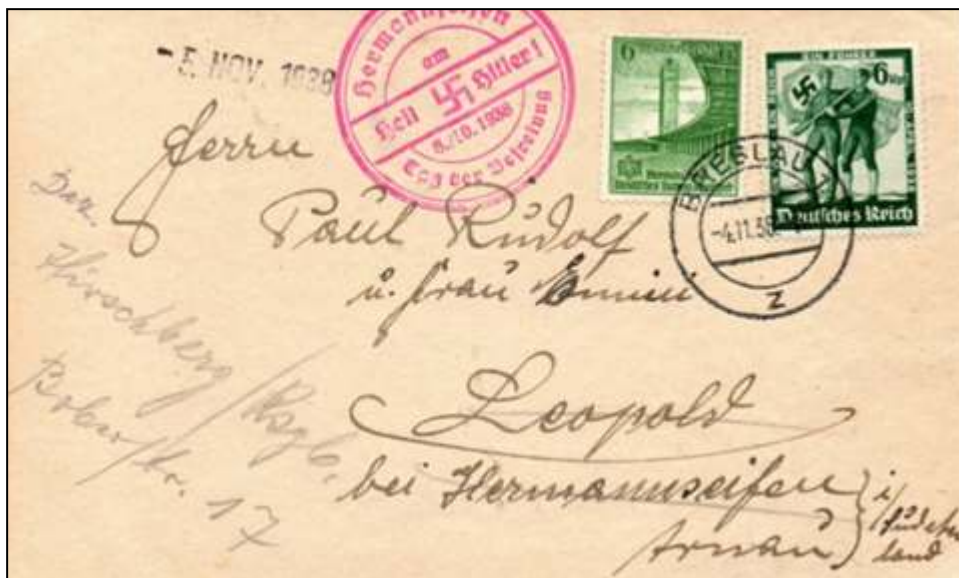 - 5. NOV. 1938
Hermannseifen
am
Heil Hitler!
8./10. 1938
Tag der Befreiung
6
6
Deutsches Reich
BRESLAU
-4.11.38
z
Herrn
Paul Rudolf
u. Frau Emmi
Leopold
bei Hermannseifen
Arnau
i/
Sudeten
land
Hirschberg/Rsgb.
17